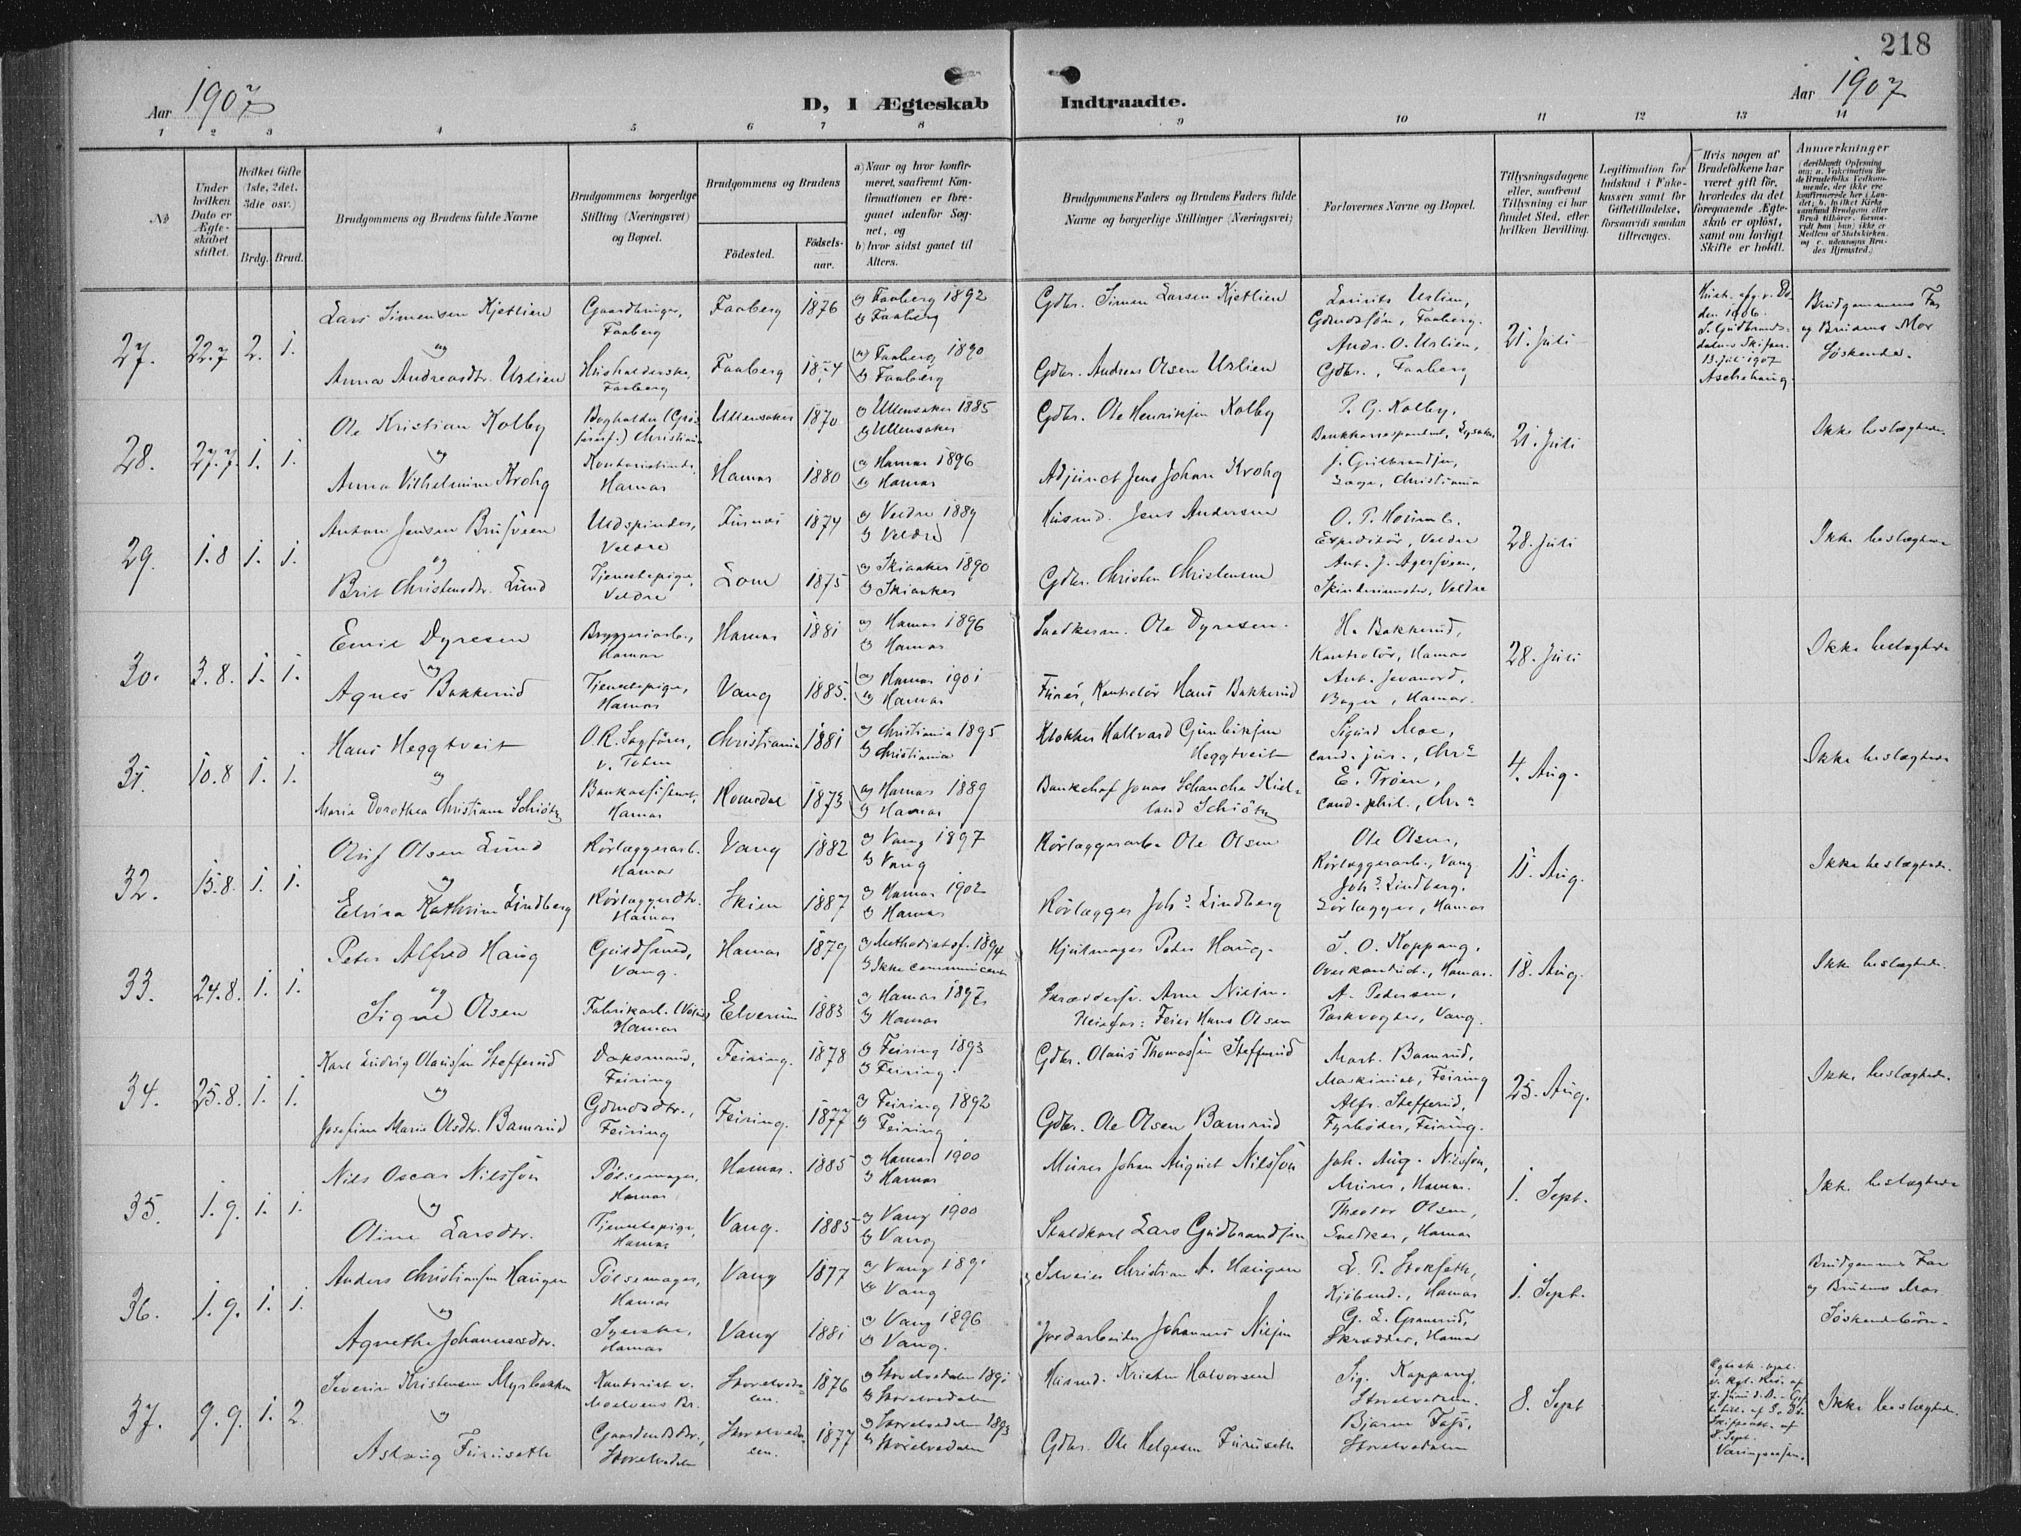 218
Aar 1907
D, I Ægteskab Indtraadte.
Aar 1907
1 2 3 4 5 6 7 8 9 10 11 12 13 14
№
Under hvilken Dato er Ægteskabet stiftet.
Hvilket Gifte (1ste, 2det, 3die osv.)
Brdg. Brud.
Brudgommens og Brudens fulde Navne
Brudgommens borgerlige Stilling (Næringsvei) og Bopæl.
Brudgommens og Brudens
Fødested.
Fødsels-aar.
a) Naar og hvor konfirmeret, saafremt Konfirmationen er foregaaet udenfor Sognet, og
b) hvor sidst gaaet til Alters.
Brudgommens Faders og Brudens Faders fulde Navne og borgerlige Stillinger (Næringsvei)
Forlovernes Navne og Bopæl.
Tillysningsdagene eller, saafremt Tillysning ei har fundet Sted, efter hvilken Bevilling.
Legitimation for Indskud i Enkekassen samt for Giftetilladelse, forsaavidt saadan tiltrænges.
Hvis nogen af Brudefolkene har været gift før, hvorledes da det foregaaende Ægteskab er opløst, samt om lovligt Skifte er holdt.
Anmærkninger
27. 22.7 2. 1.
Lars Simensen Kjetlien
Gaardbruger, Faaberg
Faaberg 1876
a) Faaberg 1892
b) Faaberg
Gdbr. Simen Larsen Kjetlien
Laurits Uslien,
Gdmdssøn, Faaberg.
21 Juli
Brudgommens Far
og Brudens Mor
Søskende.
og
Anna Andreasdtr. Uslien
Husholderske, Faaberg
Faaberg
a) Faaberg 1890
b) Faaberg
Gdbr. Andreas Olsen Uslien
Andr. O. Uslien,
Gdbr., Faaberg
13 Juli 1907
Aschehoug.
28. 27.7 1. 1.
Ole Kristian Kolby
Christiania
Ullensaker 1870
a) Ullensaker 1885
b) Ullensaker
Gdbr. Ole Henriksen Kolby
P. G. Kolby,
21. Juli
Ikke beslægtede.
og
Anna Vilhelmine Krohg
Kontoristinde, Hamar
Hamar 1880
a) Hamar 1896
b) Hamar
Adjunct Jens Johan Krohg
J. Gulbrandsen,
Christiania
29. 1.8 1. 1.
Anton Jensen Brusveen
Uldspinder, Veldre
Furnes 1874
a) Veldre 1889
b) Veldre
Husmd. Jens Andersen
Expeditør, Veldre
28. Juli
Ikke beslægtede
og
Brit Christensdtr. Lund
Tjenestepige, Veldre
Lom 1875
a) Skiaaker 1890
b) Skiaaker
Gdbr. Christen Christensen
Ant. J. Agersveen,
Veldre
30. 3.8. 1. 1.
Emil Dyresen
Bryggeriarb., Hamar
Hamar 1881
a) Hamar 1896
b) Hamar
Snedkerm. Ole Dyresen.
H. Bakkerud,
Kontrolør, Hamar
28. Juli
Ikke beslægtede
og
Agnes Bakkerud
Tjenestepige, Hamar
Vang 1885.
a) Hamar 1901
b) Hamar
Kontrolør Hans Bakkerud
Ant. Jevanord,
Bager, Hamar.
31. 10.8 1. 1.
Hans Heggtveit
O.R. Sagfører, V. Toten
Christiania 1881
a) Christiania 1895
b) Christiania
Klokker Hallvard Gunleiksen Heggtveit
Sigurd Moe,
cand. jur., Chr.a
4. Aug.
Ikke beslægtede
og
Maria Dorothea Christiane Schiøtz
Bankassistent, Hamar
Romedal 1873
a) Hamar 1889
b) Hamar
Bankchef Jonas Schanche Kielland Schiøtz
E. Trøen,
cand. phil., Chr.a
32. 15.8. 1. 1.
Oluf Olsen Lund
Rørlæggerarb. Hamar
Vang 1882
a) Vang 1897
b) Vang
Rørlæggerarb. Ole Olsen
Ole Olsen,
Rørlæggerarb., Vang
11. Aug.
Ikke beslægtede.
og
Elvira Kathrine Lindberg
Rørlæggerdtr. Hamar
Skien 1887
a) Hamar 1902
b) Hamar
Rørlægger Johs. Lindberg
Johs. Lindberg.
Rørlægger, Hamar
33. 24.8. 1. 1.
Peter Alfred Haug
Guldsmed, Vang.
Hamar 1879
a) Methodistsf. 1894
b) Ikke communicert
Hjulmager Peder Haug.
S. O. Koppang,
Overkonduct., Hamar.
18. Aug.
Ikke beslægtede.
og
Signe Olsen
Hamar
Elverum 1883
a) Hamar 1897
b) Hamar
Skræddersv. Arne Nielsen.
Pleiefar: Feier Hans Olsen
A. Pedersen,
Parkvogter, Vang.
34. 25.8. 1. 1.
Karl Ludvig Olaussen Stefferud
Feiring
Feiring. 1878
a) Feiring 1893
b) Feiring.
Gdbr. Olaus Thomassen Stefferud
Mart. Bamrud,
Maskinist, Feiring
25. Aug.
Ikke beslægtede.
og
Josefine Marie Olsdtr. Bamrud
Gdmdsdtr., Feiring
Feiring. 1877
a) Feiring 1892
b) Feiring
Gdbr. Ole Olsen Bamrud
Alfr. Stefferud,
Fyrbøder, Feiring.
35. 1.9. 1. 1.
Nils Oscar Nilsson
Pølsemager, Hamar
Hamar. 1885
a) Hamar 1900
b) Hamar
Murer Johan August Nilsson
Joh. Aug. Nilsson,
Murer, Hamar.
1. Sept.
Ikke beslægtede
og
Oline Larsdtr.
Tjenestepige, Hamar
Vang. 1885
a) Vang 1900
b) Vang
Staldkarl Lars Gudbrandsen
Theodor Olsen,
Snedker, Hamar
36. 1.9. 1. 1.
Anders Christiansen Haugen
Pølsemager, Hamar
Vang 1877
a) Vang 1891
b) Vang
Selveier Christian A. Haugen
L. P. Stokseth,
Kjøbmd., Hamar
1. Sept.
Brudgommens Far
og Brudens Mor
Søskendebørn.
og
Agnethe Johannesdtr.
Syerske, Hamar
Vang 1881
a) Vang 1896
b) Vang.
Jordarbeider Johannes Nielsen
Skrædder, Hamar
37. 9.9. 1. 2.
Severin Kristensen Myrbakken
Kontorist v. Moelvens Br.
Storelvedalen. 1876
a) Storelvedalen 1891
b) Storelvedalen
Husmd. Kristen Halvorsen
Sig. Koppang,
Storelvedalen.
8. Sept
Ikke beslægtede.
og
Aslaug Furuseth
Gaardmdsdtr., Storelvedalen
Storelvedalen. 1877
a) Storelvedalen 1893
b) Storelvedalen
Gdbr. Ole Helgesen Furuseth
Bjarne
Storelvedalen